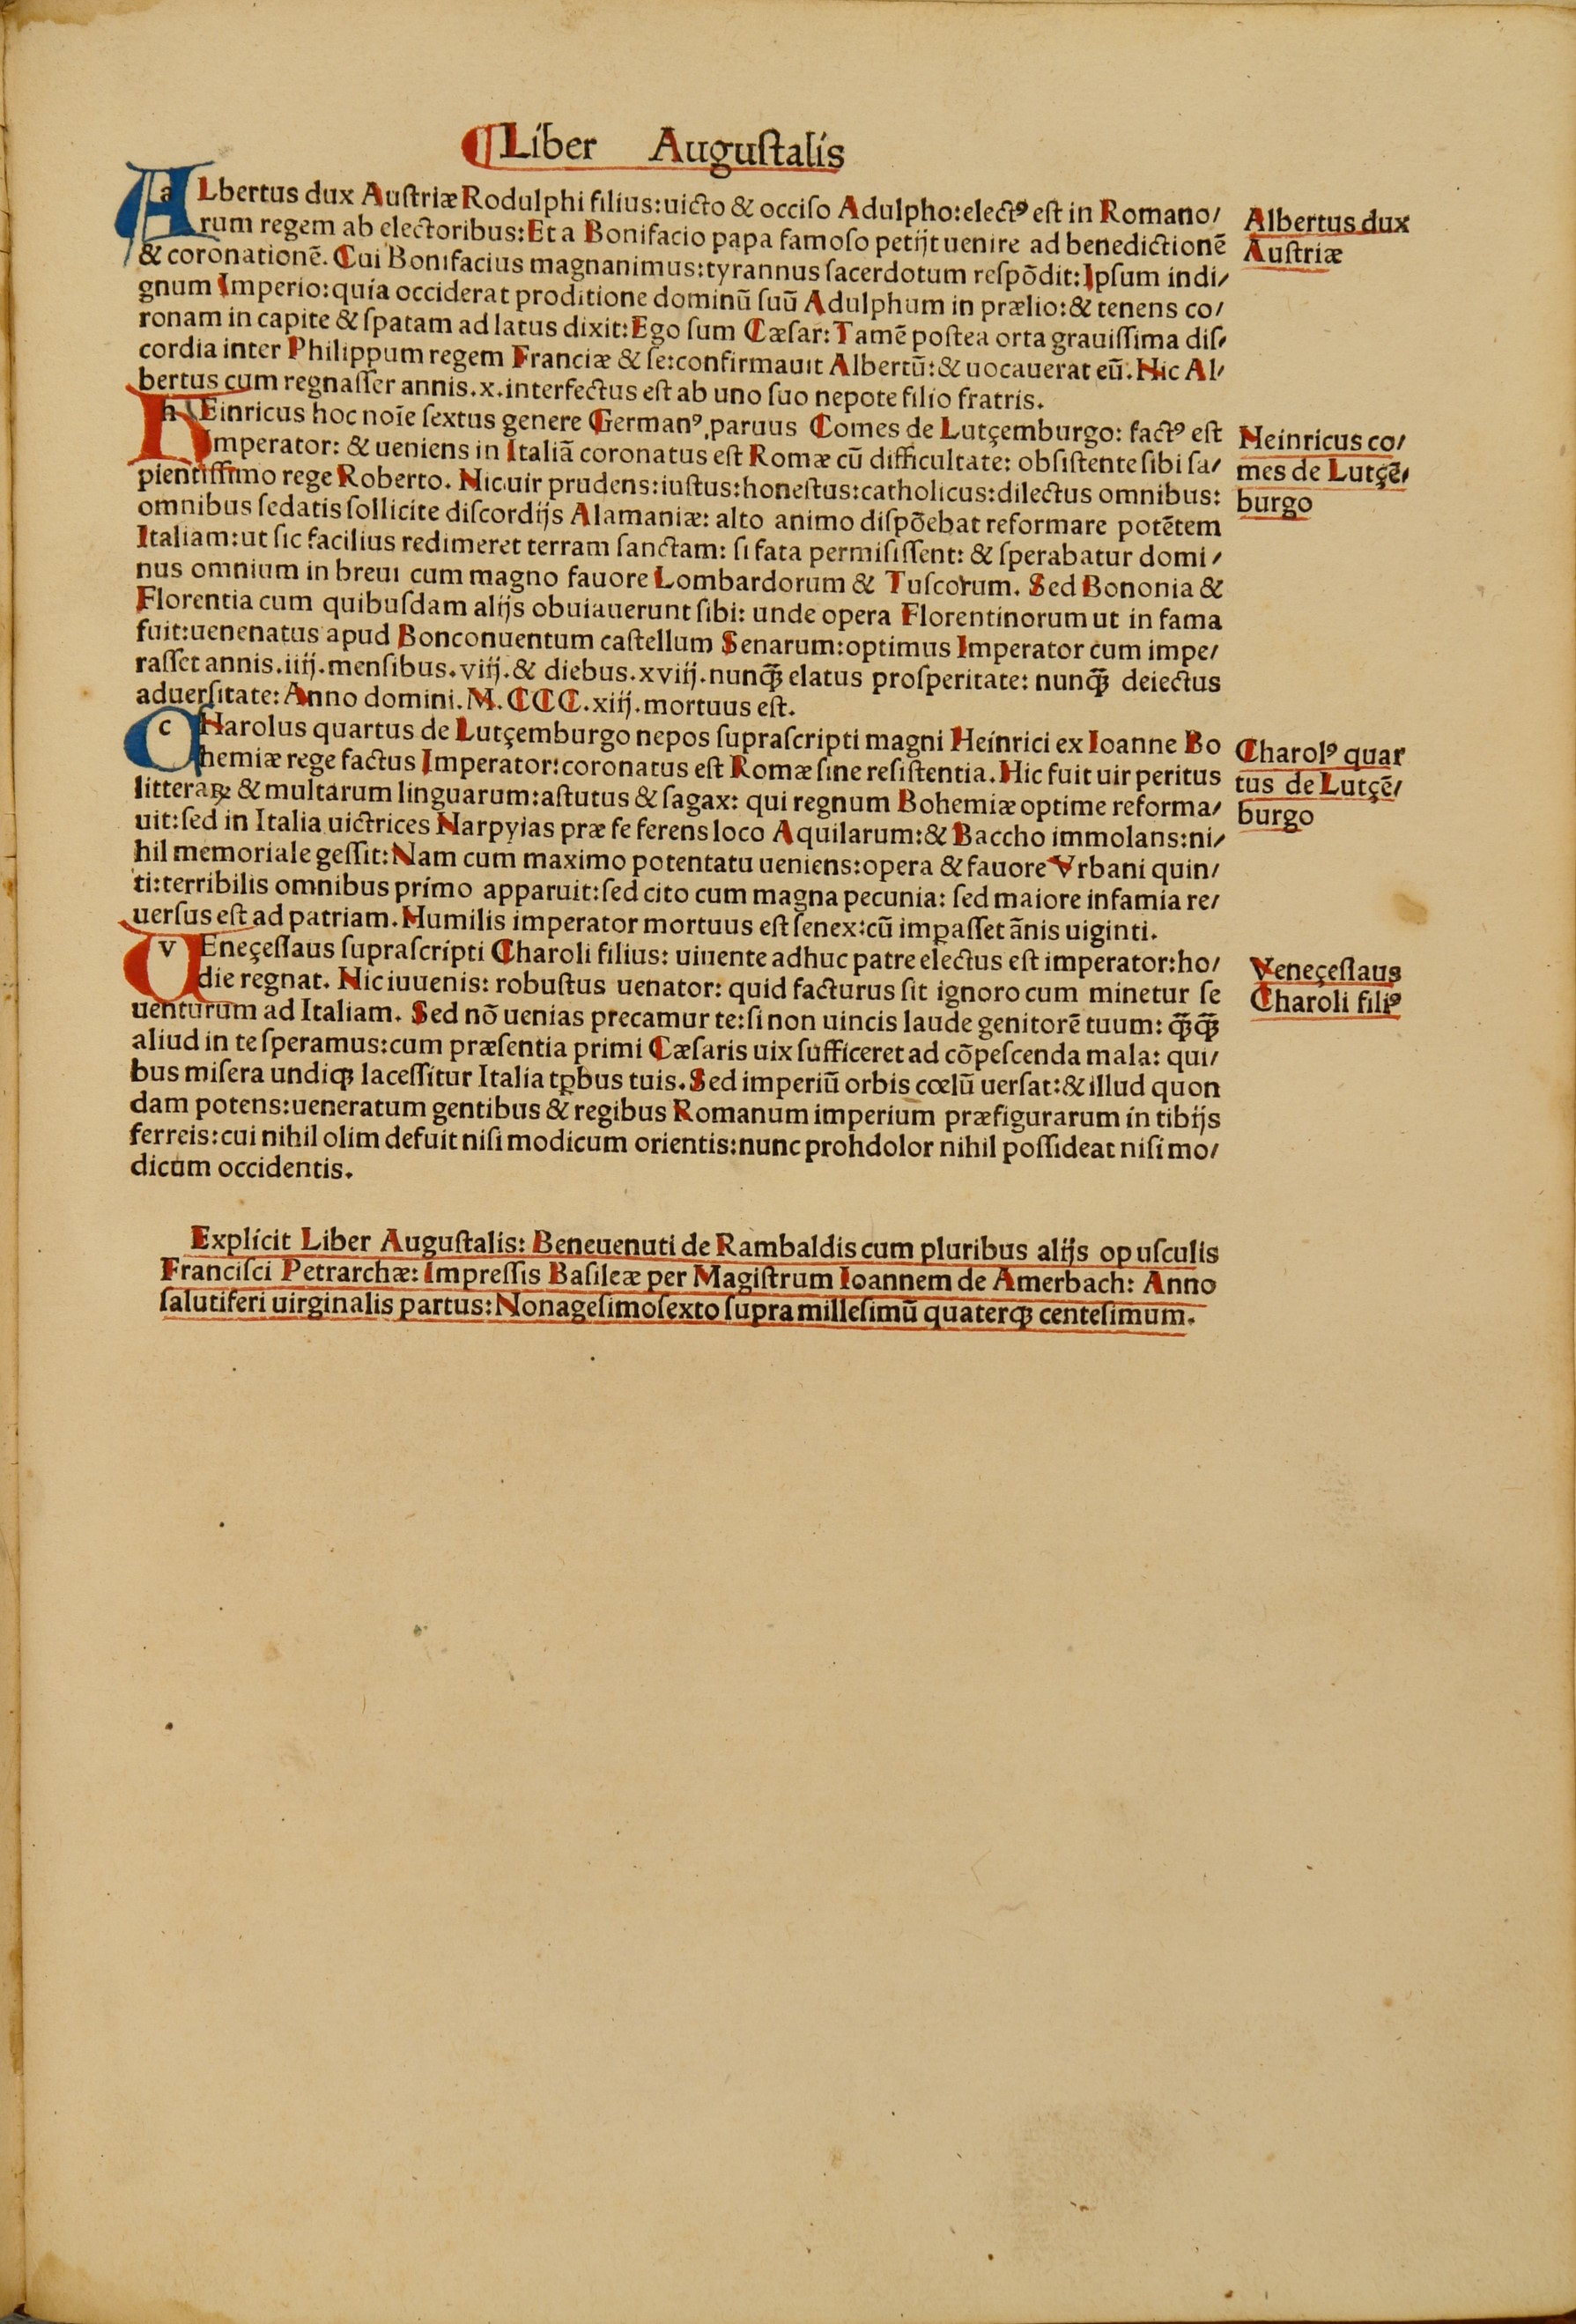 ¶Liber Auguſtalis
aLbertus dux Auſtriæ Rodulphi filius: uicto & occiſo Adulpho: electꝰ eſt in Romano/
rum regem ab electoribus: Et a Bonifacio papa famoſo petijt uenire ad benedictionē
& coronationē. Cui Bonifacius magnanimus: tyrannus ſacerdotum reſpōdit: Ipſum indi/
gnum Imperio: quia occiderat proditione dominū ſuū Adulphum in prælio: & tenens co/
ronam in capite & ſpatam ad latus dixit: Ego ſum Cæſar: Tamē poſtea orta grauiſſima diſ/
cordia inter Philippum regem Franciæ & ſe: confirmauit Albertū: & uocauerat eū. Hic Al/
bertus cum regnaſſet annis. x. interfectus eſt ab uno ſuo nepote filio fratris.
Albertus dux
Auſtriæ
hEinricus hoc noīe ſextus genere Germanꝰ, paruus Comes de Lutçemburgo: factꝰ eſt
Imperator: & ueniens in Italiā coronatus eſt Romæ cū difficultate: obſiſtente ſibi ſa/
pientiſſimo rege Roberto. Hic uir prudens: iuſtus: honeſtus: catholicus: dilectus omnibus:
omnibus ſedatis ſollicite diſcordijs Alamaniæ: alto animo diſpōebat reformare potētem
Italiam: ut ſic facilius redimeret terram ſanctam: ſi fata permiſiſſent: & ſperabatur domi/
nus omnium in breui cum magno fauore Lombardorum & Tuſcorum. Sed Bononia &
Florentia cum quibuſdam alijs obuiauerunt ſibi: unde opera Florentinorum ut in fama
fuit: uenenatus apud Bonconuentum caſtellum Senarum: optimus Imperator cum impe/
raſſet annis. iiij. menſibus. viij. & diebus. xviij. nunꝗ̄ elatus proſperitate: nunꝗ̄ deiectus
aduerſitate: Anno domini. M. CCC. xiij. mortuus eſt.
Heinricus co/
mes de Lutçē/
burgo
cHarolus quartus de Lutçemburgo nepos ſupraſcripti magni Heinrici ex Ioanne Bo
hemiæ rege factus Imperator: coronatus eſt Romæ ſine reſiſtentia. Hic fuit uir peritus
litteraꝝ & multarum linguarum: aſtutus & ſagax: qui regnum Bohemiæ optime reforma/
uit: ſed in Italia uictrices Harpyias præ ſe ferens loco Aquilarum: & Baccho immolans: ni/
hil memoriale geſſit: Nam cum maximo potentatu ueniens: opera & fauore Vrbani quin/
ti: terribilis omnibus primo apparuit: ſed cito cum magna pecunia: ſed maiore infamia re/
uerſus eſt ad patriam. Humilis imperator mortuus eſt ſenex: cū imꝑaſſet ānis uiginti.
Charolꝰ quar
tus de Lutçē/
burgo
vEneçeſlaus ſupraſcripti Charoli filius: uiuente adhuc patre electus eſt imperator: ho/
die regnat. Hic iuuenis: robuſtus uenator: quid facturus ſit ignoro cum minetur ſe
uenturum ad Italiam. Sed nō uenias precamur te: ſi non uincis laude genitorē tuum: ꝗ̄ꝗ̄
aliud in te ſperamus: cum præſentia primi Cæſaris uix ſufficeret ad cōpeſcenda mala: qui/
bus miſera undiqꝫ laceſſitur Italia tꝑbus tuis. Sed imperiū orbis cœlū uerſat: & illud quon
dam potens: ueneratum gentibus & regibus Romanum imperium præfigurarum in tibijs
ferreis: cui nihil olim defuit niſi modicum orientis: nunc prohdolor nihil poſſideat niſi mo/
dicum occidentis.
Veneçeſlaus
Charoli filiꝰ
Explicit Liber Auguſtalis: Beneuenuti de Rambaldis cum pluribus alijs opuſculis
Franciſci Petrarchæ: Impreſſis Baſileæ per Magiſtrum Ioannem de Amerbach: Anno
ſalutiferi uirginalis partus: Nonageſimoſexto ſupra milleſimū quaterqꝫ centeſimum.